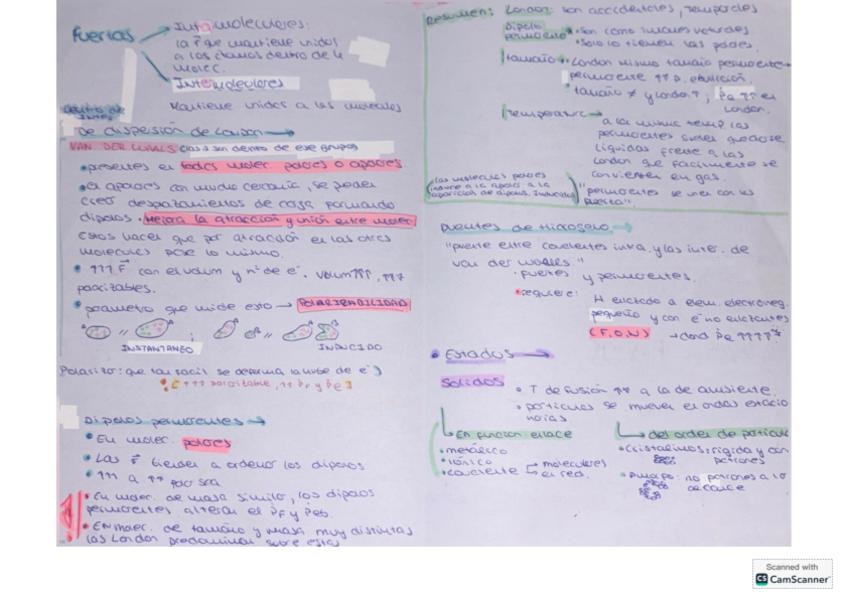 Fuerzas
Intramoleculares:
la F que mantiene unidos
a los átomos dentro de la
molec.
Intermoleculares
Mantiene unidos a las moleculas
De dispersión de London
VAN DER WAALS
dentro de ese grupo
• presentes en todas molec polares o apolares
• a apolares con mucha cercanía, se pueden
crear desplazamientos de carga formando
dipolos. Mejora la atracción y unión entre molec
estos hacen que por atracción en las otras
moleculas pase lo mismo.
• ↑↑↑ F con el volum y nº de e-. volum↑↑, ↑↑↑
polarizables.
• parametro que mide esto → POLARIZABILIDAD
INSTANTANEO
INDUCIDO
que tan facil se deforma la nube de e-)
Dipolos permanentes
• En molec. polares
• Las F tienden a ordenar los dipolos
• ↑↑ a ↑↑ polar sea
• En molec. de masa similar, los dipolos
permanentes alteran el PF y Peb.
• EN molec. de tamaño y masa muy distintas
las London predominan sobre estas
Resumen: London: son accidentales, temporales
Dipolo
permanente
• Son como imanes
• Solo lo tienen las polares.
Tamaño
• London mismo tamaño permanente
permanente ↑↑ p. ebullición.
• tamaño ≠ y London ↑, Pe ↑↑ en
London.
Temperatura
a la misma temp las
permanentes suelen quedarse
liquidas frente a las
London que facilmente se
convierten en gas.
"permanentes se unen con las
Las moleculas polares
induce a la apolar a la
aparicion de dipolos. Inducidos
Puentes de Hidrogeno
"puente entre covalentes intra. y las inter. de
van der walles."
• fuertes y permanentes.
• requiere:
H enlazado a elem. electroneg.
pequeño y con e- no enlazantes
(F, O, N)
Estados
Solidos
• T de fusión ↑↑ a la de ambiente.
• particulas se mueven en ondas estacio
narias
En funcion enlace
• metalico
• iónico
• covalente
moleculares
en red.
del orden de particulas
• cristalinos: rigida y con
patrones
• Amorfo: no patrones a lo
Scanned with
CS CamScanner